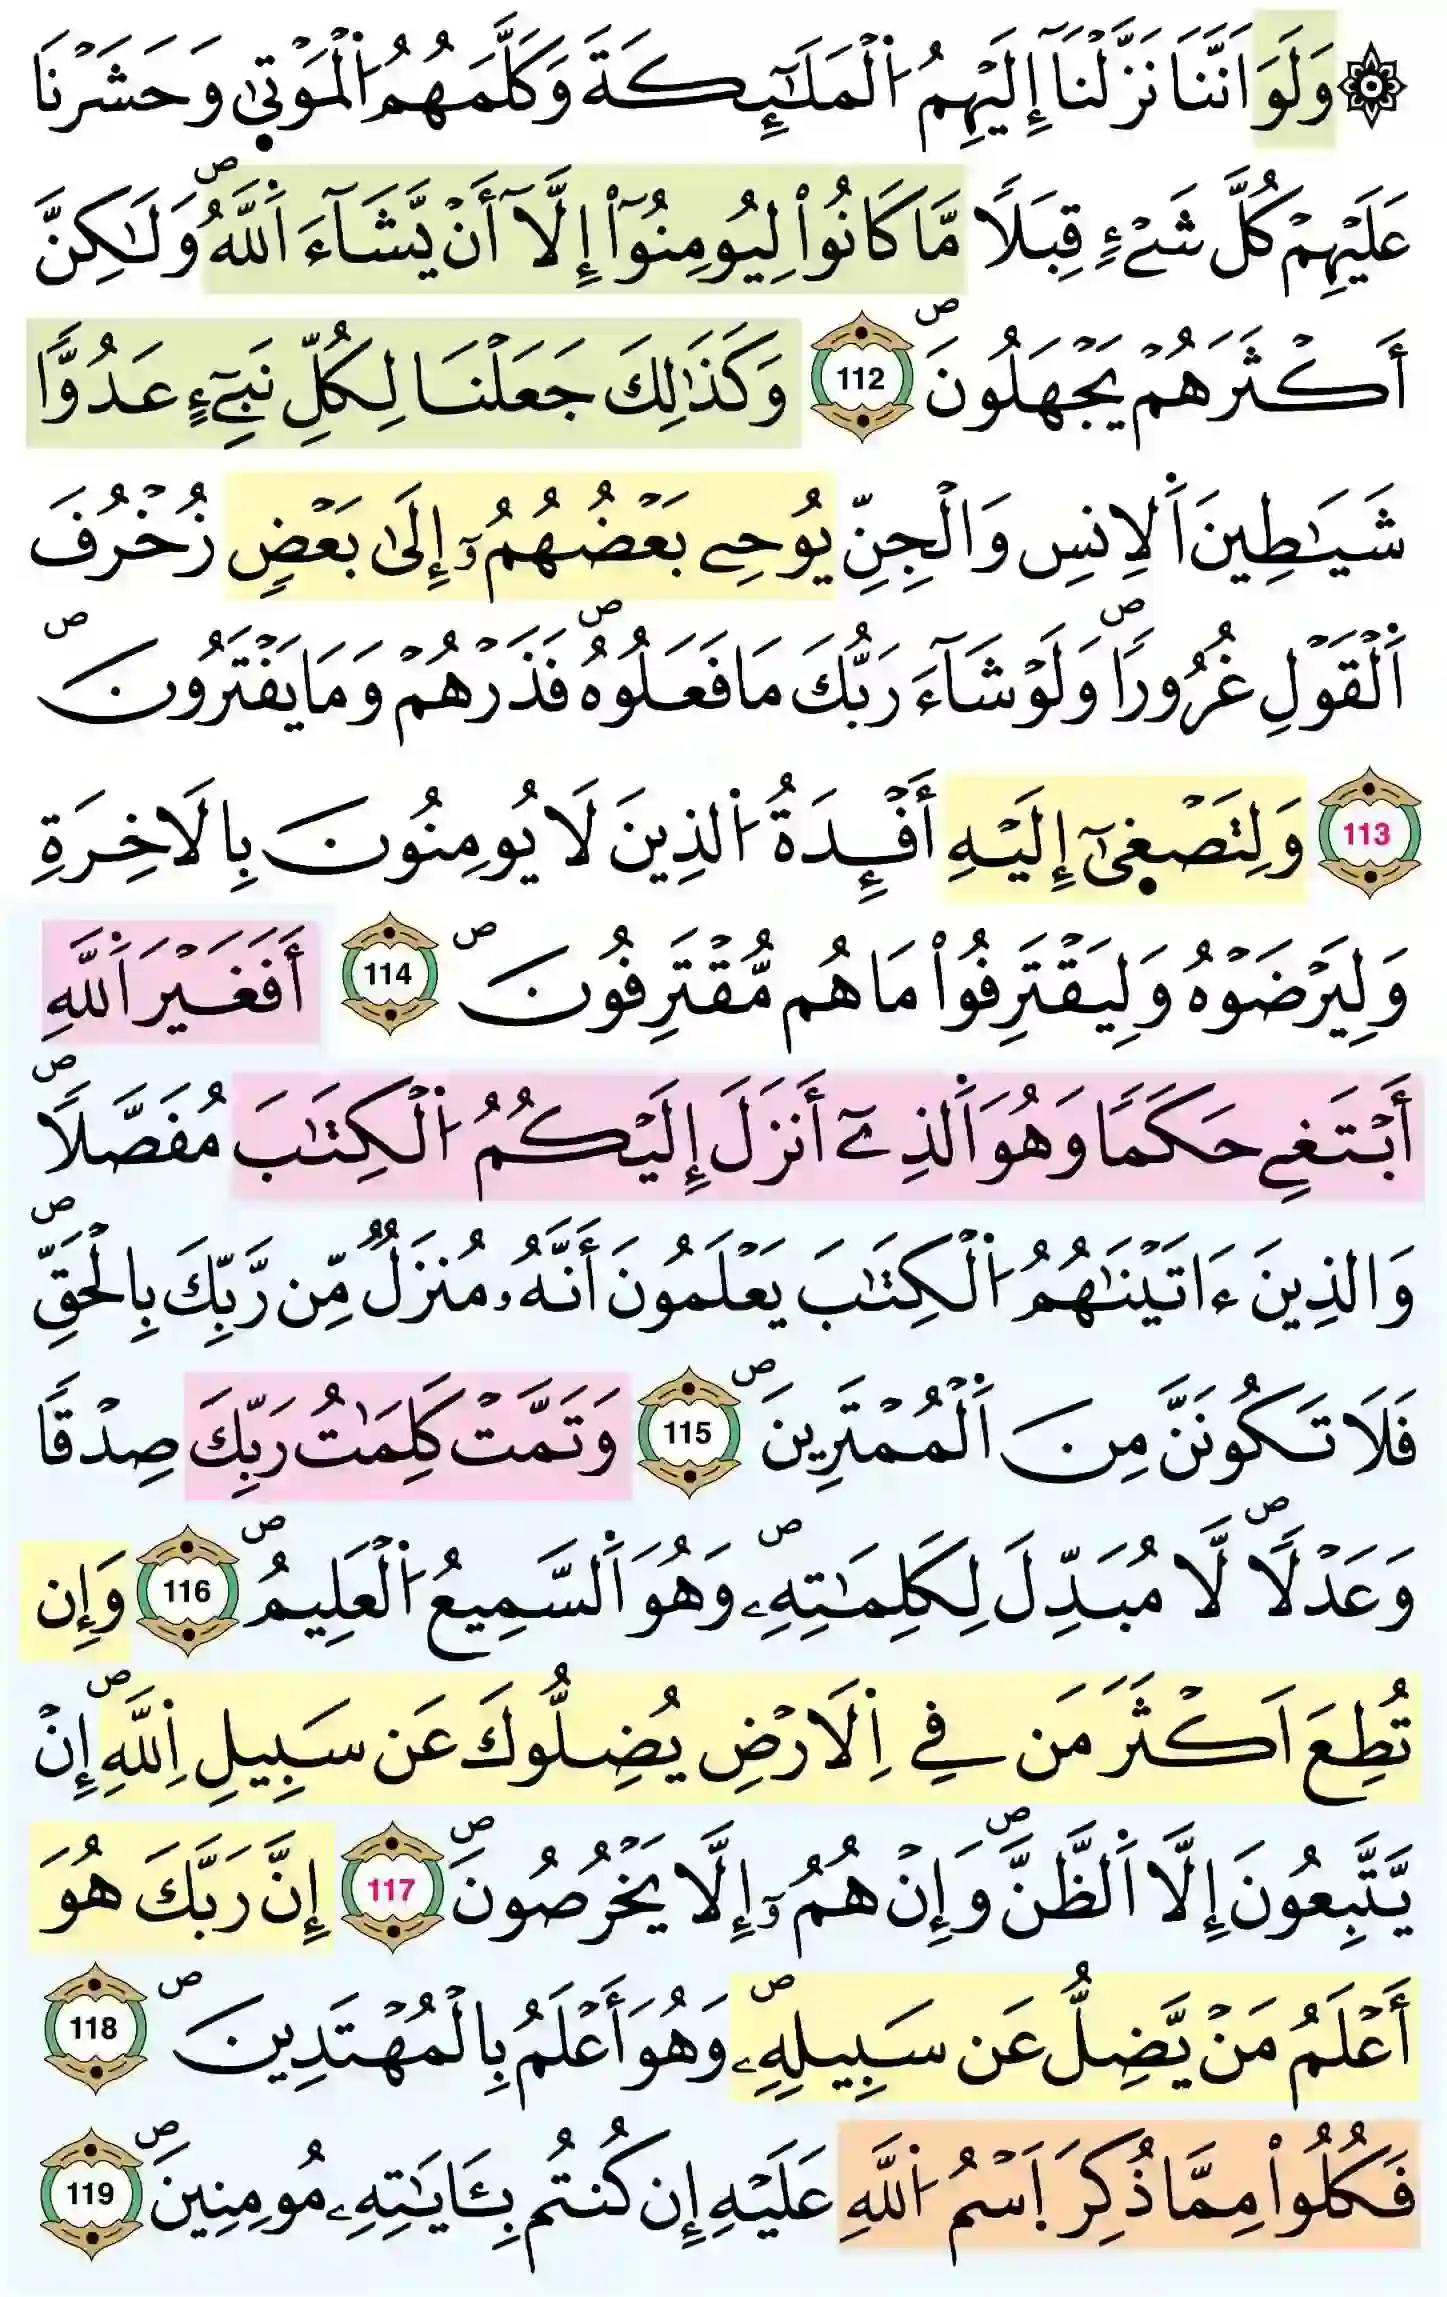 ۞ وَلَوَ اَنَّنَا نَزَّلْنَآ إِلَيْهِمُ اُ۬لْمَلَٰٓئِكَةَ وَكَلَّمَهُمُ اُ۬لْمَوْت۪يٰ وَحَشَرْنَا
عَلَيْهِمْ كُلَّ شَےْءٖ قِبَلاٗ مَّا كَانُواْ لِيُومِنُوٓاْ إِلَّآ أَنْ يَّشَآءَ اَ۬للَّهُۖ وَلَٰكِنَّ
أَكْثَرَهُمْ يَجْهَلُونَۖ 112 وَكَذَٰلِكَ جَعَلْنَا لِكُلِّ نَبِےٓءٍ عَدُوّاٗ
شَيَٰطِينَ اَ۬لِانسِ وَالْجِنِّ يُوحِے بَعْضُهُمُۥٓ إِلَىٰ بَعْضٖ زُخْرُفَ
اَ۬لْقَوْلِ غُرُوراٗۖ وَلَوْ شَآءَ رَبُّكَ مَا فَعَلُوهُۖ فَذَرْهُمْ وَمَا يَفْتَرُونَۖ
113 وَلِتَصْغ۪يٰٓ إِلَيْهِ أَفْـِٕدَةُ اُ۬لذِينَ لَا يُومِنُونَ بِالَاخِرَةِ
وَلِيَرْضَوْهُ وَلِيَقْتَرِفُواْ مَا هُم مُّقْتَرِفُونَۖ 114 أَفَغَيْرَ اَ۬للَّهِ
أَبْتَغِے حَكَماٗ وَهُوَ اَ۬لذِےٓ أَنزَلَ إِلَيْكُمُ اُ۬لْكِتَٰبَ مُفَصَّلاٗۖ
وَالذِينَ ءَاتَيْنَٰهُمُ اُ۬لْكِتَٰبَ يَعْلَمُونَ أَنَّهُۥ مُنزَلٞ مِّن رَّبِّكَ بِالْحَقِّۖ
فَلَا تَكُونَنَّ مِنَ اَ۬لْمُمْتَرِينَۖ 115 وَتَمَّتْ كَلِمَٰتُ رَبِّكَ صِدْقاٗ
وَعَدْلاٗۖ لَّا مُبَدِّلَ لِكَلِمَٰتِهِۦۖ وَهُوَ اَ۬لسَّمِيعُ اُ۬لْعَلِيمُۖ 116 وَإِن
تُطِعَ اَكْثَرَ مَن فِے اِ۬لَارْضِ يُضِلُّوكَ عَن سَبِيلِ اِ۬للَّهِۖ إِنْ
يَّتَّبِعُونَ إِلَّا اَ۬لظَّنَّۖ وَإِنْ هُمُۥٓ إِلَّا يَخْرُصُونَۖ 117 إِنَّ رَبَّكَ هُوَ
أَعْلَمُ مَنْ يَّضِلُّ عَن سَبِيلِهِۦۖ وَهُوَ أَعْلَمُ بِالْمُهْتَدِينَۖ 118
فَكُلُواْ مِمَّا ذُكِرَ اَ۪سْمُ اُ۬للَّهِ عَلَيْهِ إِن كُنتُم بِـَٔايَٰتِهِۦ مُومِنِينَۖ 119